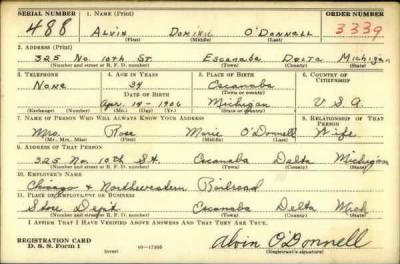 SERIAL NUMBER 1. NAME (Print) ORDER NUMBER
488 ALVIN DOMINIC O'DONNELL 3339
(First) (Middle) (Last)
2. ADDRESS (Print)
325 No. 10th St. Escanaba Delta Michigan
(Number and street or R. F. D. number) (Town) (County) (State)
3. TELEPHONE 4. AGE IN YEARS 5. PLACE OF BIRTH 6. COUNTRY OF CITIZENSHIP
None 34 Escanaba
DATE OF BIRTH (Town or county)
Apr. 14 - 1906 Michigan U.S.A.
(Exchange) (Number) (Mo.) (Day) (Yr.) (State or country)
7. NAME OF PERSON WHO WILL ALWAYS KNOW YOUR ADDRESS 8. RELATIONSHIP OF THAT PERSON
Mrs. Rose Marie O'Donnell Wife
(Mr., Mrs., Miss) (First) (Middle) (Last)
9. ADDRESS OF THAT PERSON
325 No. 10th St. Escanaba Delta Michigan
(Number and street or R. F. D. number) (Town) (County) (State)
10. EMPLOYER'S NAME
Chicago & Northwestern Railroad
11. PLACE OF EMPLOYMENT OR BUSINESS
Store Dept. Escanaba Delta Mich
(Number and street or R. F. D. number) (Town) (County) (State)
I AFFIRM THAT I HAVE VERIFIED ABOVE ANSWERS AND THAT THEY ARE TRUE.
REGISTRATION CARD
D. S. S. Form 1 16—17105 Alvin O'Donnell
(Registrant's signature)